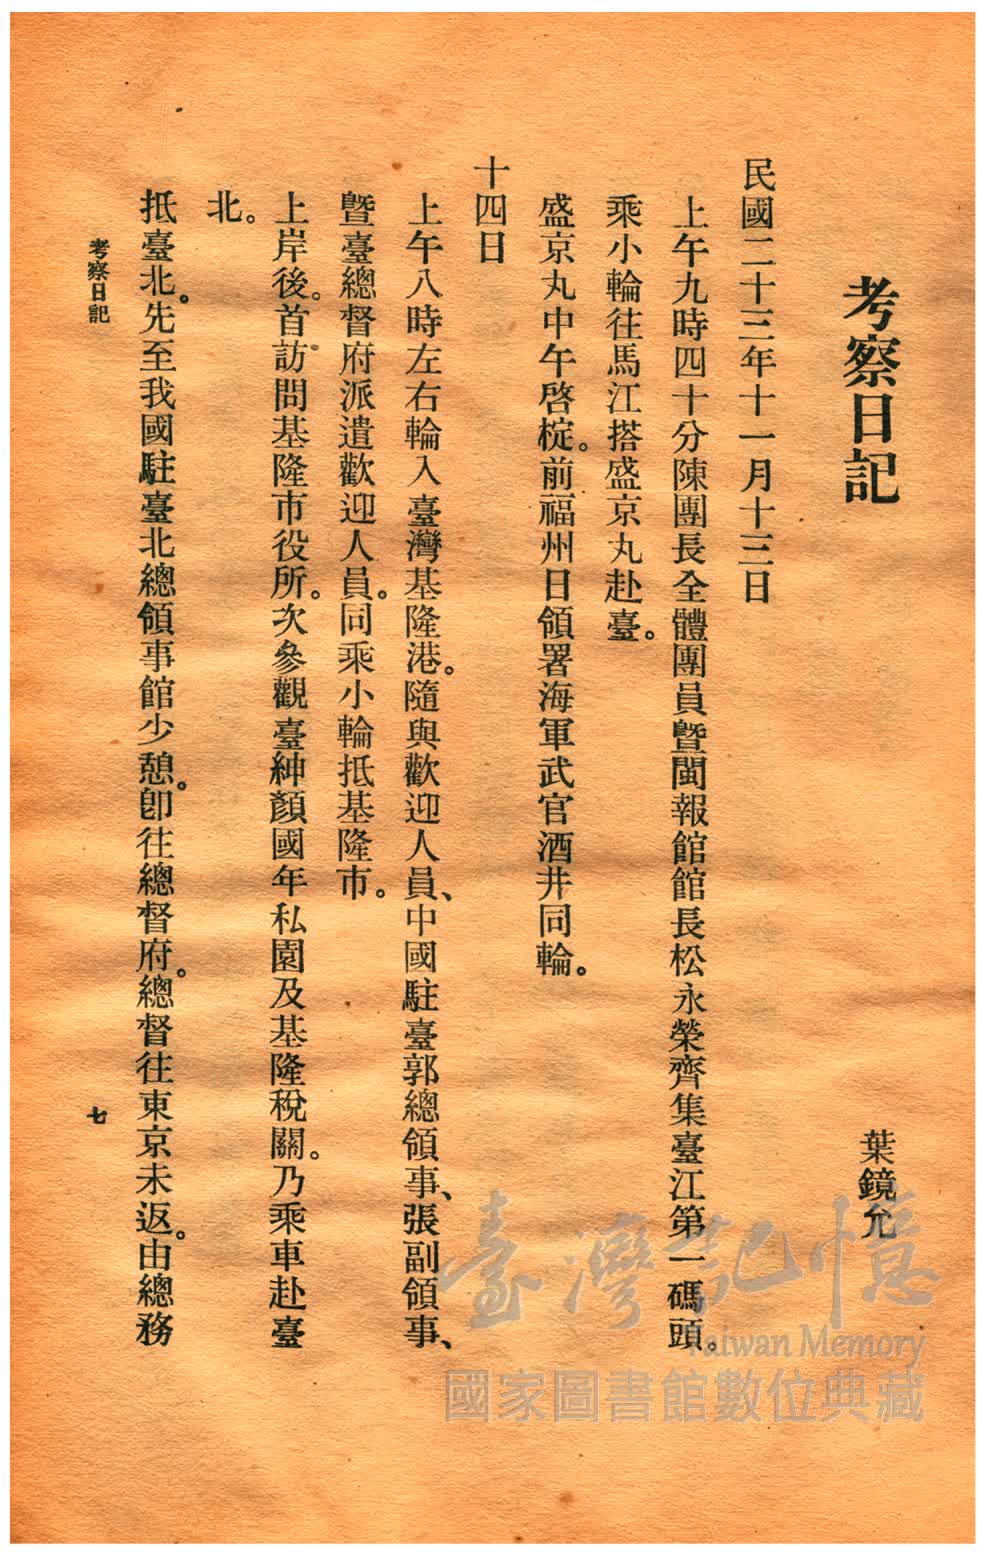 考察日記
葉鏡允
民國二十三年十一月十三日
上午九時四十分陳團長全體團員暨閩報館館長松永榮齊集臺江第一碼頭。
乘小輪往馬江搭盛京丸赴臺。
盛京丸中午啓椗。前福州日領署海軍武官酒井同輪。
十四日
上午八時左右輪入臺灣基隆港。隨與歡迎人員、中國駐臺郭總領事、張副領事、
暨臺總督府派遣歡迎人員。同乘小輪抵基隆市。
上岸後。首訪問基隆市役所。次參觀臺紳顏國年私園及基隆稅關。乃乘車赴臺
北。
抵臺北。先至我國駐臺北總領事館少憩。卽往總督府。總督往東京未返。由總務
考察日記
七
臺灣記憶
Taiwan Memory
國家圖書館數位典藏